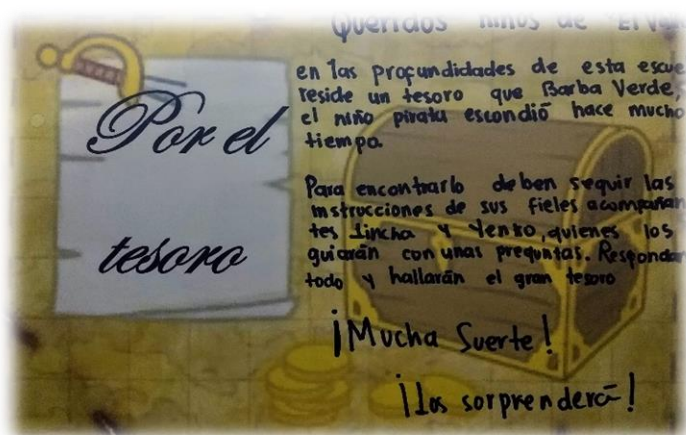 Por el
tesoro
Queridos niños de
en las profundidades de esta escue
reside un tesoro que Barba Verde,
el niño pirata escondió hace mucho
tiempo.
Para encontrarlo deben seguir las
instrucciones de sus fieles acompañan
tes Lincha y Yenko, quienes los
guiarán con unas preguntas. Respondan
todo y hallarán el gran tesoro
¡Mucha Suerte!
¡Los sorprenderá!